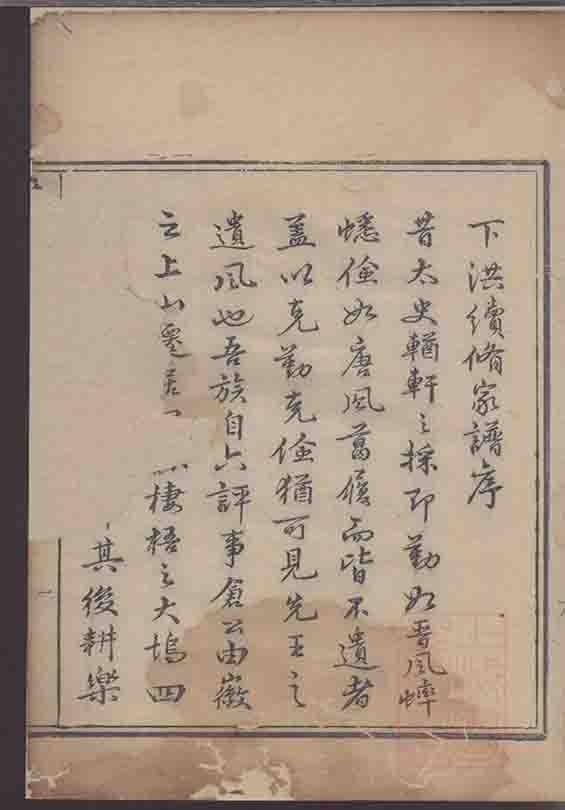 下洪續脩家譜序
昔太史輶軒之採即勤如晉風蟀
蟋儉如唐風葛屨而皆不遺者
盖以克勤克儉猶可見先王之
遺風也吾族自六評事倉公由徽
云上山遷居一 棲梧之大塢四
其後耕樂